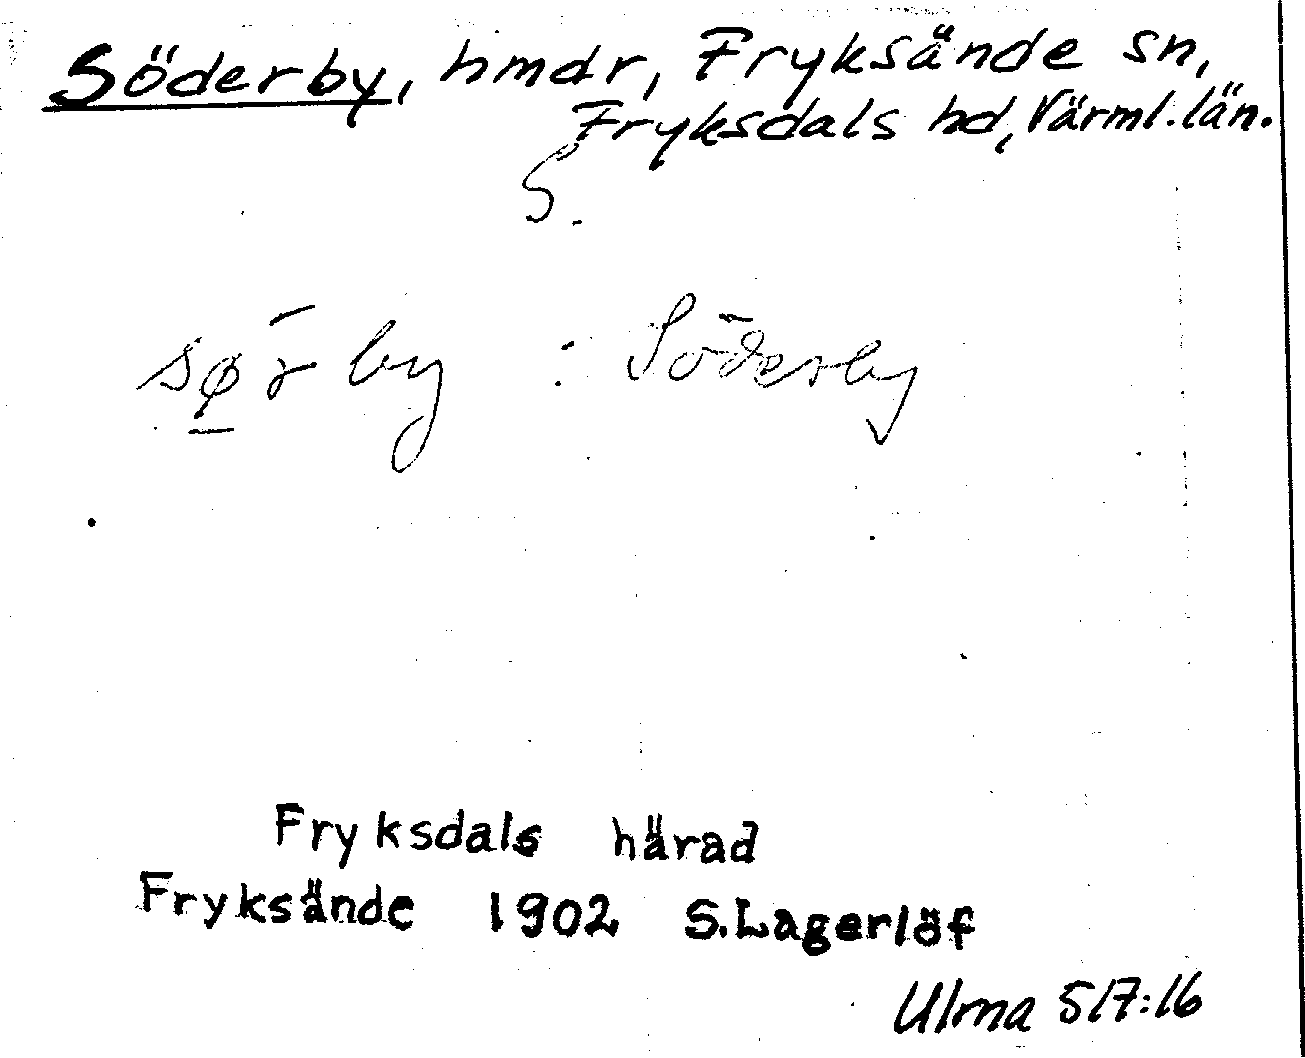 Söderby, hmdr, Fryksände sn,
Fryksdals hd, Värml. län.
S.
sø̱r by : Söderby
Fryksdals härad
Fryksände 1902 S. Lagerlöf
Ulma 517:16